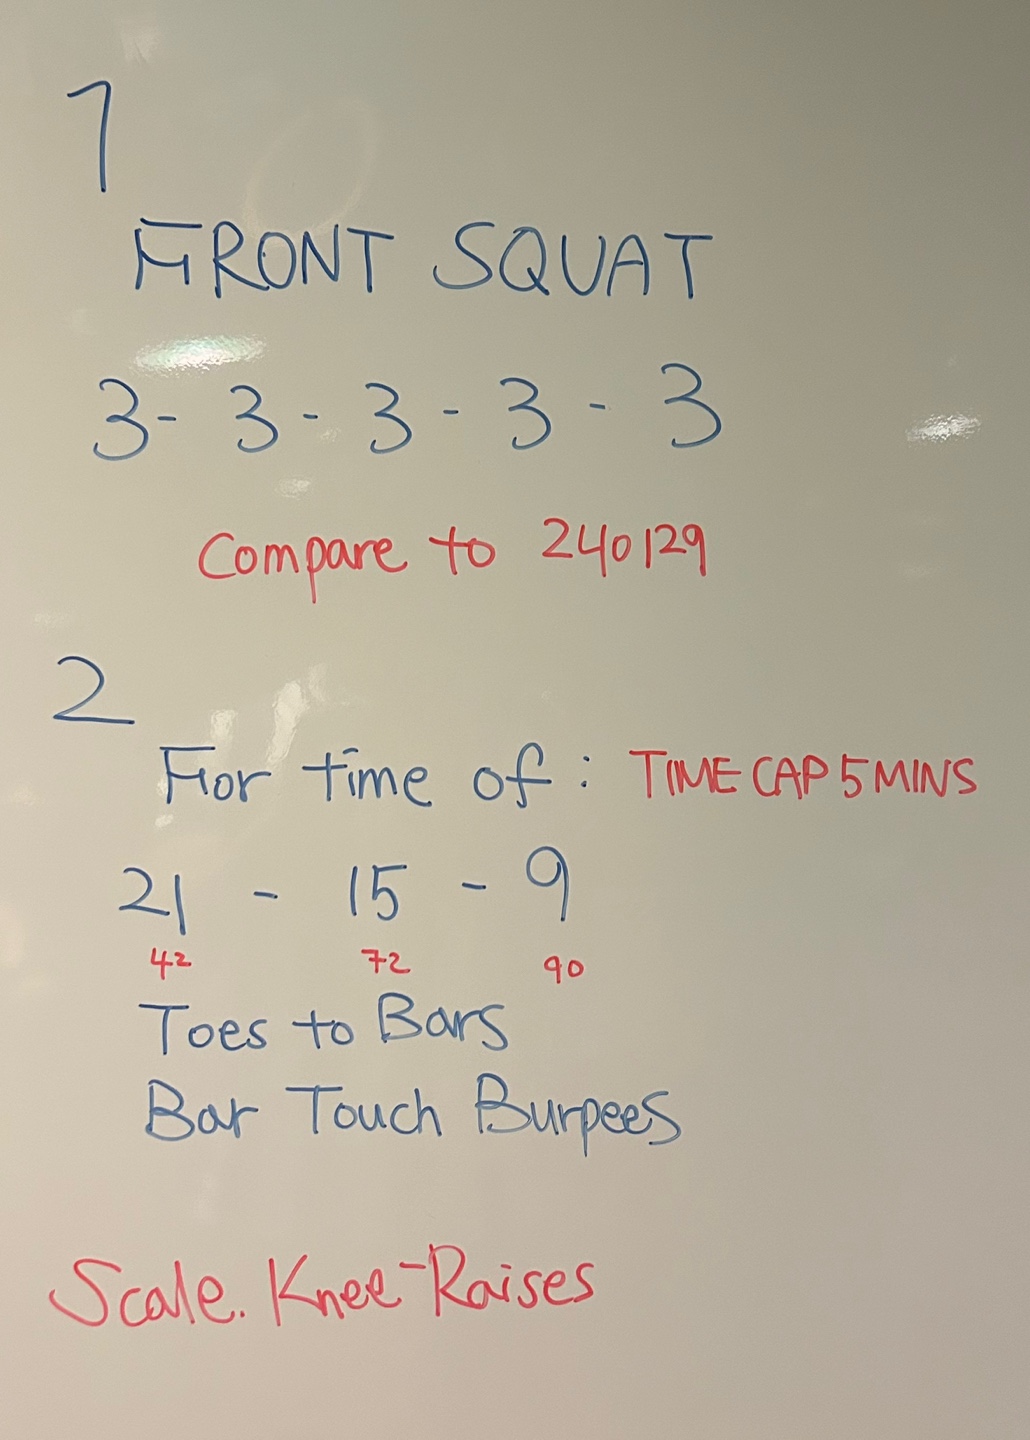 1
FRONT SQUAT
3 - 3 - 3 - 3 - 3
Compare to 240129
2
For time of : TIME CAP 5 MINS
21 - 15 - 9
42 72 90
Toes to Bars
Bar Touch Burpees
Scale. Knee-Raises